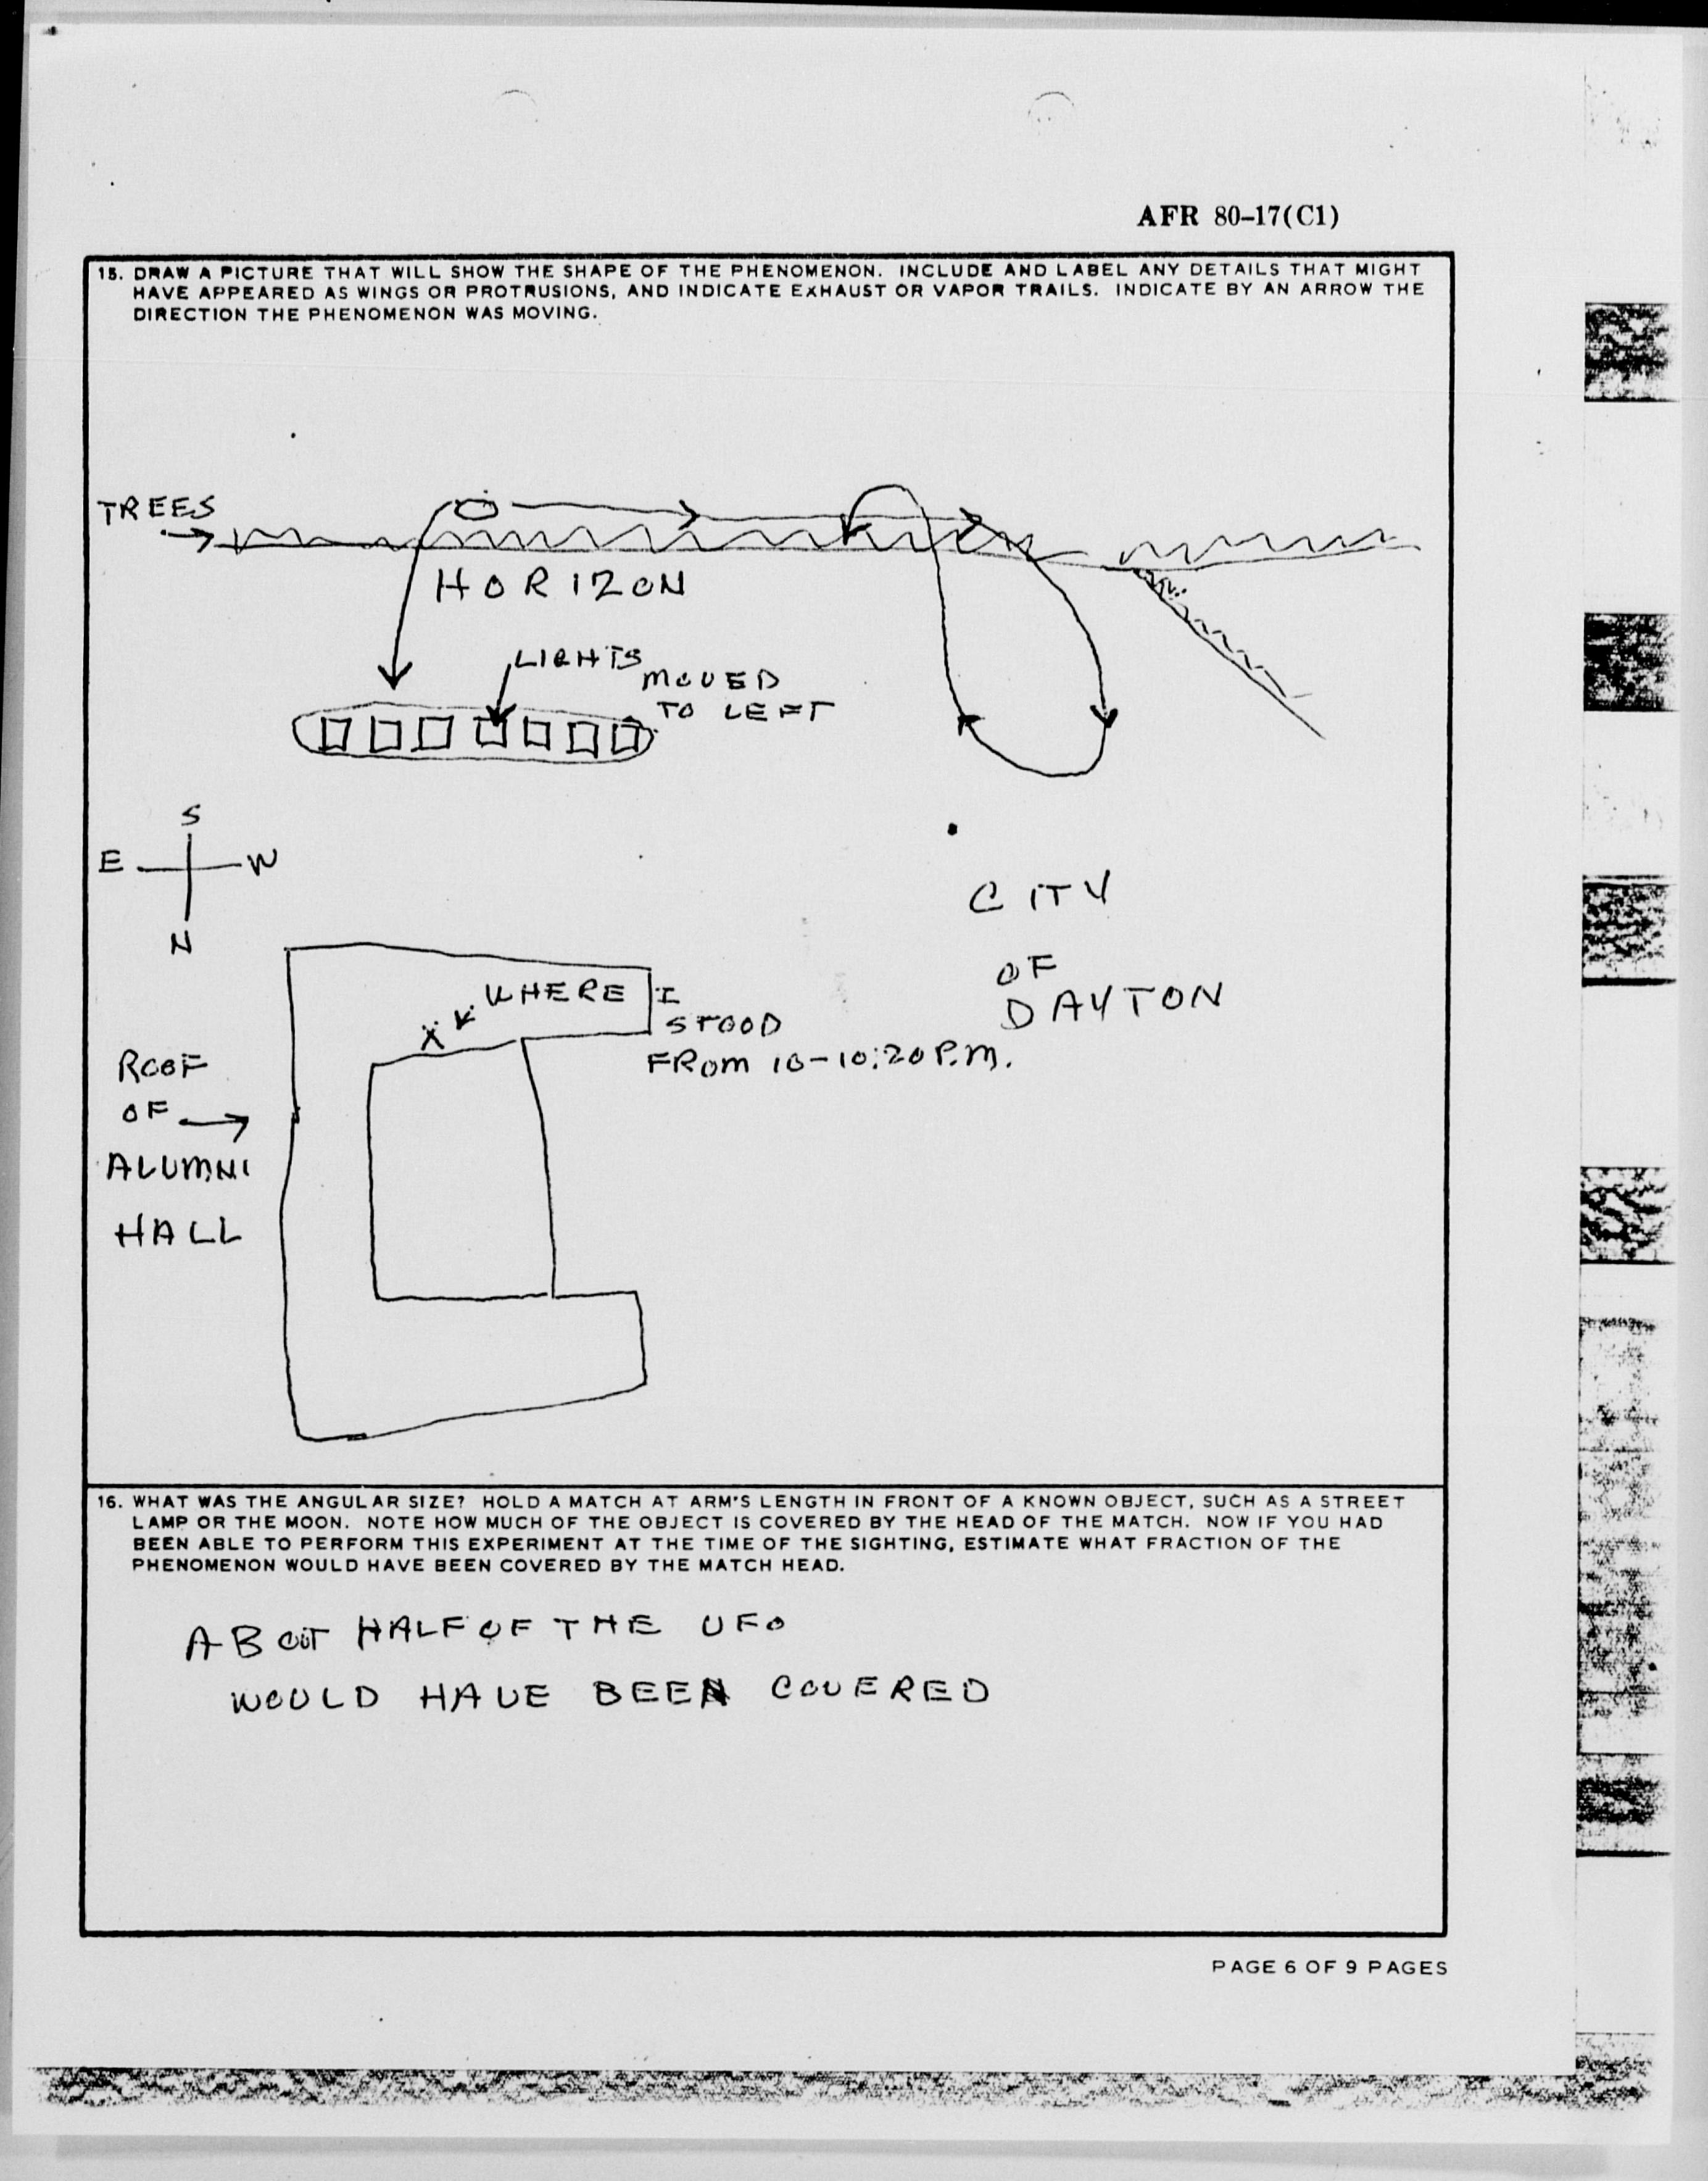 AFR 80-17(C1)
15. DRAW A PICTURE THAT WILL SHOW THE SHAPE OF THE PHENOMENON. INCLUDE AND LABEL ANY DETAILS THAT MIGHT
HAVE APPEARED AS WINGS OR PROTRUSIONS, AND INDICATE EXHAUST OR VAPOR TRAILS. INDICATE BY AN ARROW THE
DIRECTION THE PHENOMENON WAS MOVING.
TREES
HORIZON
LIGHTS
MOVED
TO LEFT
S
E W
N
CITY
OF
DAYTON
WHERE I
STOOD
FROM 10-10:20 P.M.
X
ROOF
OF
ALUMNI
HALL
16. WHAT WAS THE ANGULAR SIZE? HOLD A MATCH AT ARM'S LENGTH IN FRONT OF A KNOWN OBJECT, SUCH AS A STREET
LAMP OR THE MOON. NOTE HOW MUCH OF THE OBJECT IS COVERED BY THE HEAD OF THE MATCH. NOW IF YOU HAD
BEEN ABLE TO PERFORM THIS EXPERIMENT AT THE TIME OF THE SIGHTING, ESTIMATE WHAT FRACTION OF THE
PHENOMENON WOULD HAVE BEEN COVERED BY THE MATCH HEAD.
ABOUT HALF OF THE UFO
WOULD HAVE BEEN COVERED
PAGE 6 OF 9 PAGES